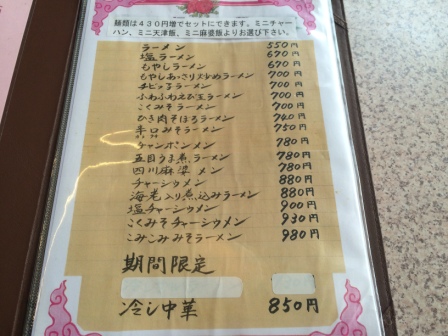 麺類は430円増でセットにできます。ミニチャー
ハン、ミニ天津飯、ミニ麻婆飯よりお選び下さい。
ラーメン 550円
塩ラーメン 670円
もやしラーメン 670円
もやしあっさり炒めラーメン 700円
チビっ子ラーメン 700円
ふわふわえび玉ラーメン 700円
こくみそラーメン 700円
ひき肉そぼろラーメン 740円
辛口みそラーメン 750円
チャンポンメン 780円
五目うま煮ラーメン 780円
四川麻婆メン 780円
チャーシューメン 880円
海老入り煮込みラーメン 880円
塩チャーシューメン 900円
こくみそチャーシューメン 930円
こみこみみそラーメン 980円
期間限定
冷し中華 850円